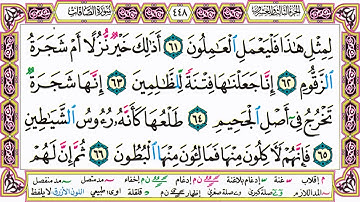 الجزء الثالث والعشرون ٤٤٨ سورة الصافات
لِمِثْلِ هَٰذَا فَلْيَعْمَلِ الْعَامِلُونَ ٦١ أَذَٰلِكَ خَيْرٌ نُّزُلًا أَمْ شَجَرَةُ
الزَّقُّومِ ٦٢ إِنَّا جَعَلْنَاهَا فِتْنَةً لِّلظَّالِمِينَ ٦٣ إِنَّهَا شَجَرَةٌ
تَخْرُجُ فِي أَصْلِ الْجَحِيمِ ٦٤ طَلْعُهَا كَأَنَّهُ رُءُوسُ الشَّيَاطِينِ
٦٥ فَإِنَّهُمْ لَآكِلُونَ مِنْهَا فَمَالِئُونَ مِنْهَا الْبُطُونَ ٦٦ ثُمَّ إِنَّ لَهُمْ